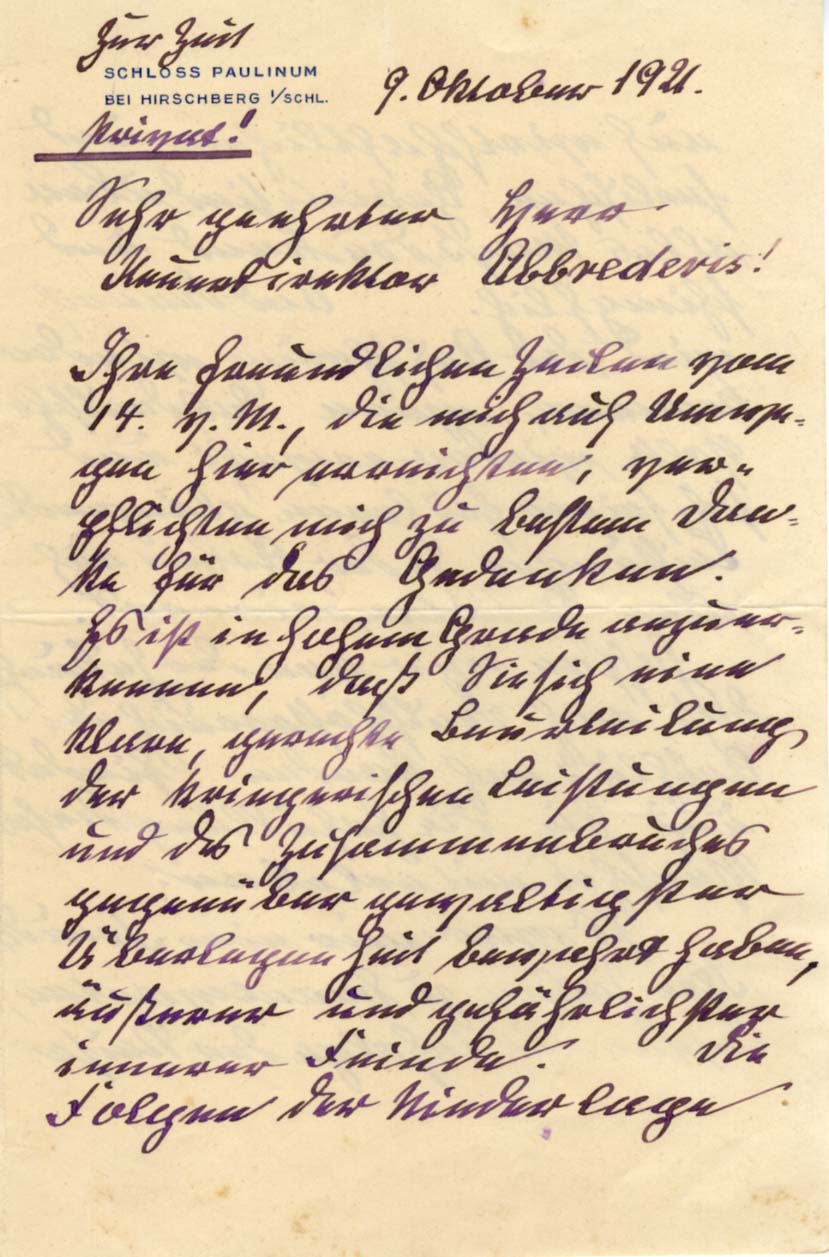 Zur Zeit
SCHLOSS PAULINUM
BEI HIRSCHBERG I/SCHL.
9. Oktober 1921.
Privat!
Sehr geehrter Herr
Steuerdirektor Abbrederis!
Ihre freundlichen Zeilen vom
14. v. M., die mich auf Umwe-
gen hier erreichten, ver-
pflichten mich zu bestem Dan-
ke für das Gedenken.
Es ist in hohem Grade anzuer-
kennen, daß Sie sich eine
klare, gerechte Beurteilung
der kriegerischen Leistungen
und des Zusammenbruches
gegenüber gewaltigster
Überlegenheit bewahrt haben,
äußerer und gefährlichster
innerer Feinde. Die
Folgen der Niederlage